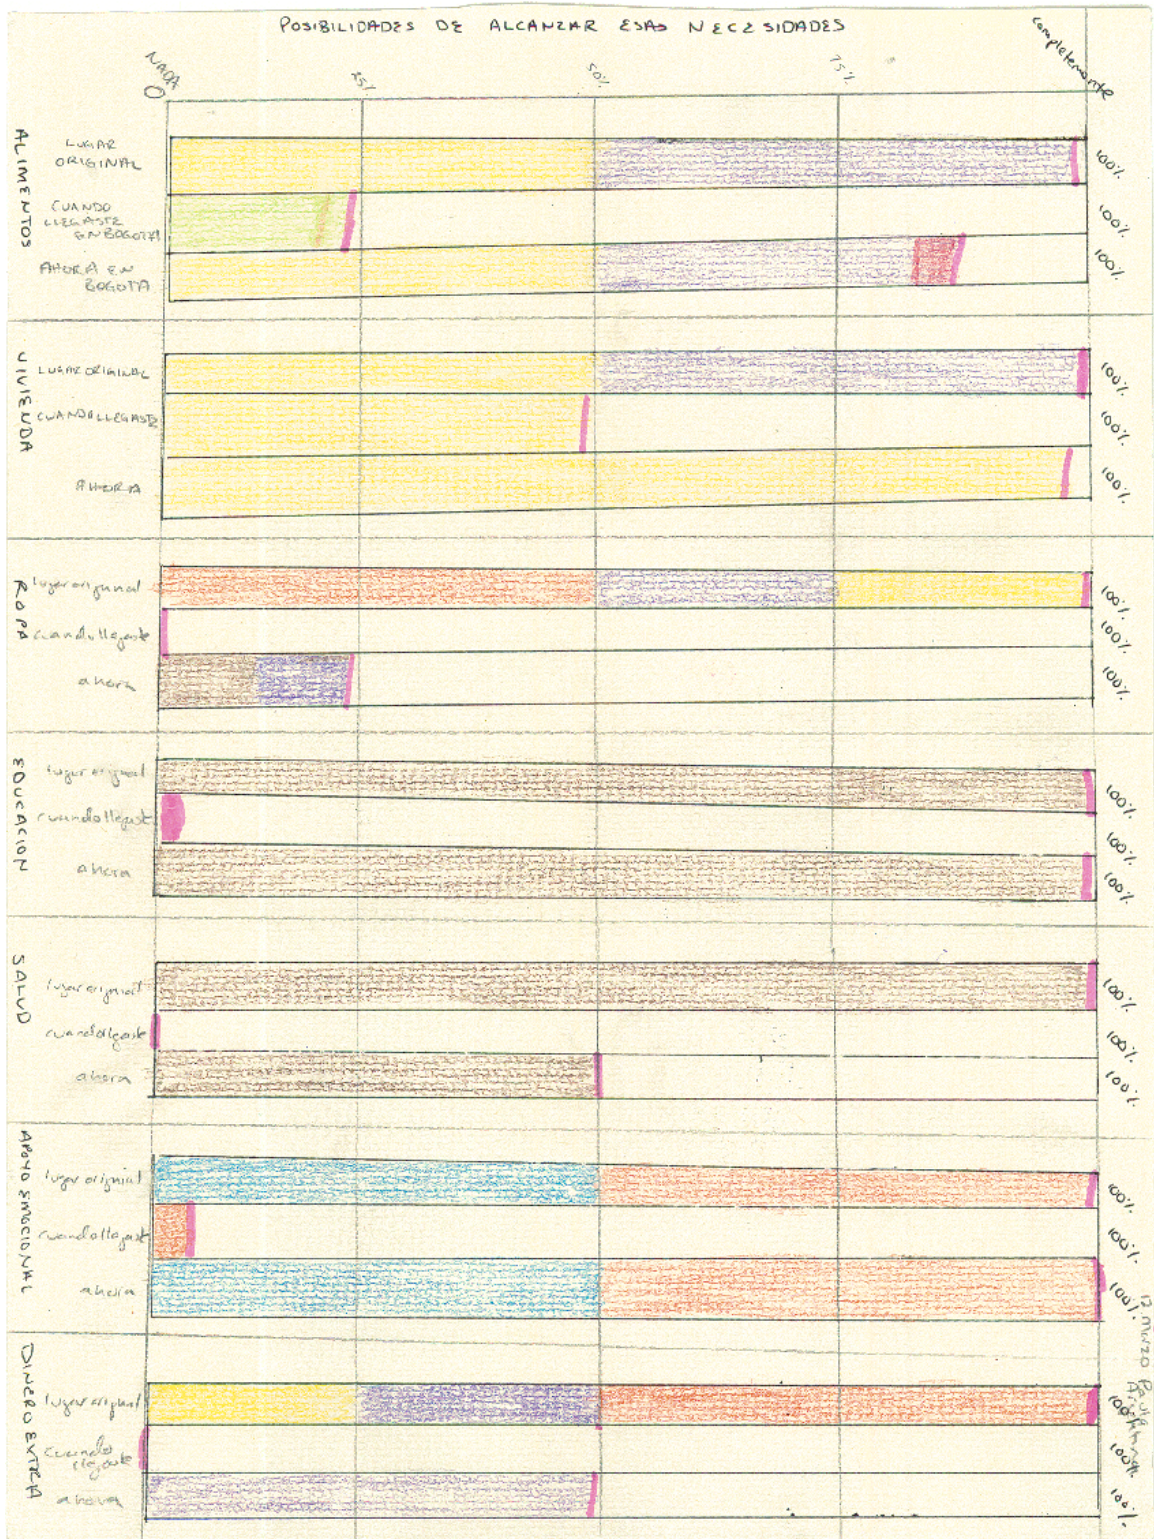 POSIBILIDADES DE ALCANZAR ESAS NECESIDADES
NADA
0
25%
50%
75%
completamente
ALIMENTOS
LUGAR
ORIGINAL
100%
CUANDO
LLEGASTE
EN BOGOTA
100%
AHORA EN
BOGOTA
100%
VIVIENDA
LUGAR ORIGINAL
100%
CUANDO LLEGASTE
100%
AHORA
100%
ROPA
lugar original
100%
cuando llegaste
100%
ahora
100%
EDUCACION
lugar original
100%
cuando llegast
100%
ahora
100%
SALUD
lugar original
100%
cuando llegaste
100%
ahora
100%
APOYO EMOCIONAL
lugar original
100%
cuando llegast
100%
ahora
100%
DINERO EXTRA
lugar original
100%
cuando
llegaste
100%
ahora
100%
12 marzo